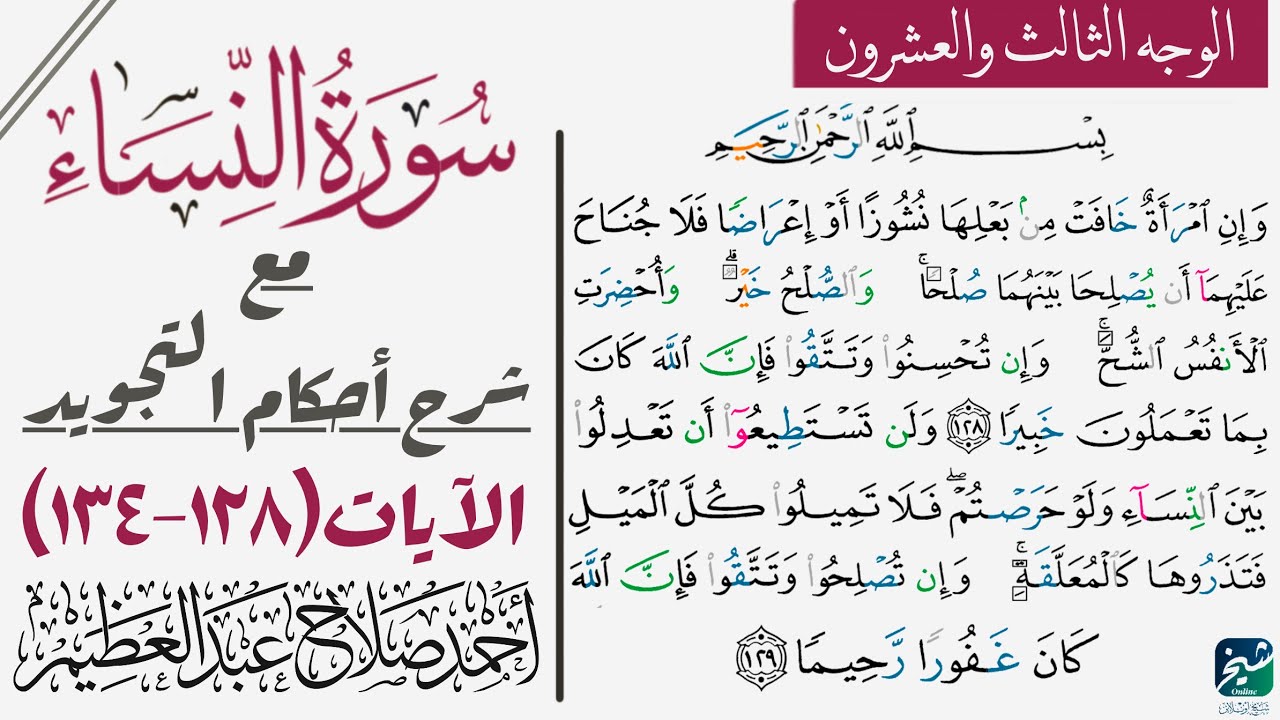 الوجه الثالث والعشرون
سُورَةُ النِّسَاءِ
مع
شرح أحكام التجويد
الآيات (١٢٨-١٣٤)
أحمد صلاح عبد العظيم
بِسْمِ ٱللَّهِ ٱلرَّحْمَٰنِ ٱلرَّحِيمِ
وَإِنِ ٱمْرَأَةٌ خَافَتْ مِنۢ بَعْلِهَا نُشُوزًا أَوْ إِعْرَاضًا فَلَا جُنَاحَ
عَلَيْهِمَآ أَن يُصْلِحَا بَيْنَهُمَا صُلْحًاۚ وَٱلصُّلْحُ خَيْرٌۗ وَأُحْضِرَتِ
ٱلْأَنفُسُ ٱلشُّحَّۚ وَإِن تُحْسِنُوا۟ وَتَتَّقُوا۟ فَإِنَّ ٱللَّهَ كَانَ
بِمَا تَعْمَلُونَ خَبِيرًا ١٢٨ وَلَن تَسْتَطِيعُوٓا۟ أَن تَعْدِلُوا۟
بَيْنَ ٱلنِّسَآءِ وَلَوْ حَرَصْتُمْۖ فَلَا تَمِيلُوا۟ كُلَّ ٱلْمَيْلِ
فَتَذَرُوهَا كَٱلْمُعَلَّقَةِۚ وَإِن تُصْلِحُوا۟ وَتَتَّقُوا۟ فَإِنَّ ٱللَّهَ
كَانَ غَفُورًا رَّحِيمًا ١٢٩
شيخ
Online
شيخ اونلاين